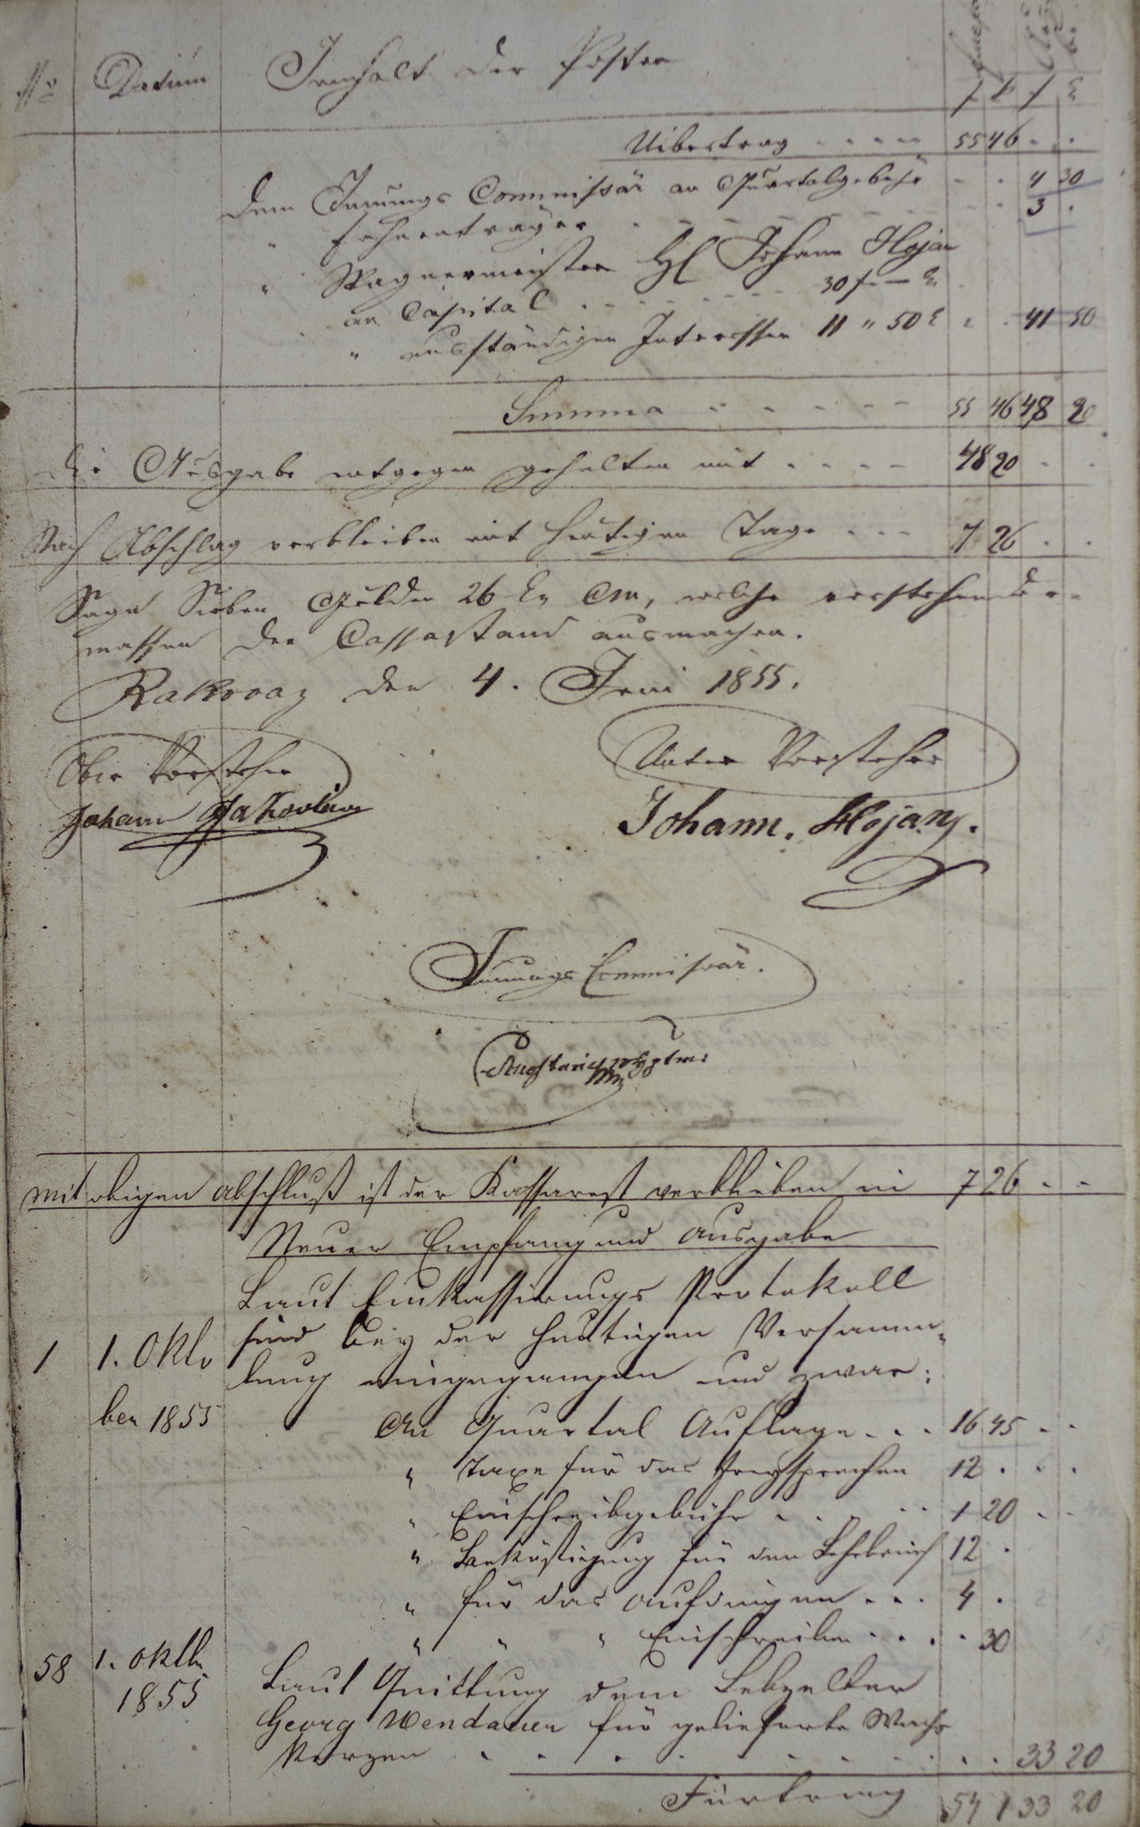 No Datum Innhalt der Posten
f x f x
Uibertrag - - - - 55 46 - -
Dem Innungs Commissär an Quartalgebühr - - 4 30
" Fahnenträger - - - 3 -
" Wagnermeister H Johann Hojan
an Capital - - - - 30 f - x
" ausständigen Interessen 11 " 50 x - - 41 50
Summa - - - - - 55 46 48 20
Die Ausgabe entgegen gehalten mit - - - - 48 20 - -
Nach Abschlag verbleiben mit heutigen Tage - - - 7 26 - -
Sage Sieben Gulden 26 kr CM, welche vorstehender-
massen den Cassastand ausmachen.
Rakovaz den 4. Juni 1855.
Ober Vorsteher Unter Vorsteher
Johann Johann. Hojany.
Innungs Commissär.
mit obigen abschluß ist der Kassarest verblieben in 7 26 - -
Neuer Empfang und Ausgabe
Laut Einkassierungs Protokoll
1 1. Okto sind bey der heutigen Versamm-
lung eingegangen und zwar:
ber 1855 An Quartal Auflage - - - 16 45 - -
" Taxe für das Freysprechen 12 - - -
" Einschreibgebühr - - - 1 20 - -
" Beköstigung für den Lehrbrief 12 -
" für das aufdingen - - - 4 -
" " " Einschreiben - - - - 30
58 1. Oktb Laut Quittung dem Lebzelter
1855 Georg Wendauer für gelieferte Wachs
Kerzen - - - - - - - 33 20
Fürtrag 54 1 33 20